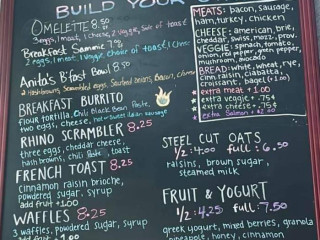 BUILD YOUR
OMELETTE 8.50
3 eggs, 1 meat, 1 cheese, 2 veggie, side of toast
Breakfast Sammie 7.50
2 eggs, 1 meat, 1 veggie, choice of toast, 1 cheese
Anita's B'fast Bowl 8.50
2 hashbrowns, scrambled eggs,
BREAKFAST BURRITO
flour tortilla, chili, black bean paste,
two eggs, cheese, hot or sweet italian sausage
RHINO SCRAMBLER 8.25
three eggs, cheddar cheese,
hash browns, chili paste, toast
FRENCH TOAST 8.25
cinnamon raisin brioche,
powdered sugar, syrup
add fruit +1.00
WAFFLES 8.25
3 waffles, powdered sugar, syrup
add fruit +1.00
MEATS: bacon, sausage,
ham, turkey, chicken
CHEESE: american, brie,
cheddar, swiss, mozz, prov.
VEGGIE: spinach, tomato,
onion, red pepper, green pepper,
mushroom, avocado
BREAD: white, wheat, rye,
cinn. raisin, ciabatta,
croissant, bagel (+1.00)
extra meat + 1.00
extra veggie + .75¢
extra cheese + .75¢
extra Salmon + $2.00
STEEL CUT OATS
1/2: 4.00 full: 6.50
raisins, brown sugar,
steamed milk
FRUIT & YOGURT
1/2: 4.25 full: 7.50
greek yogurt, mixed berries, granola
pineapple, honey, cinnamon